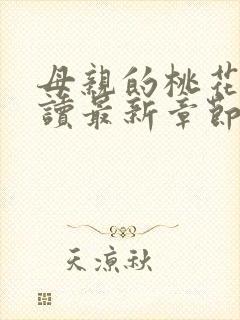 母親的桃花
讀最新章節
天涼秋